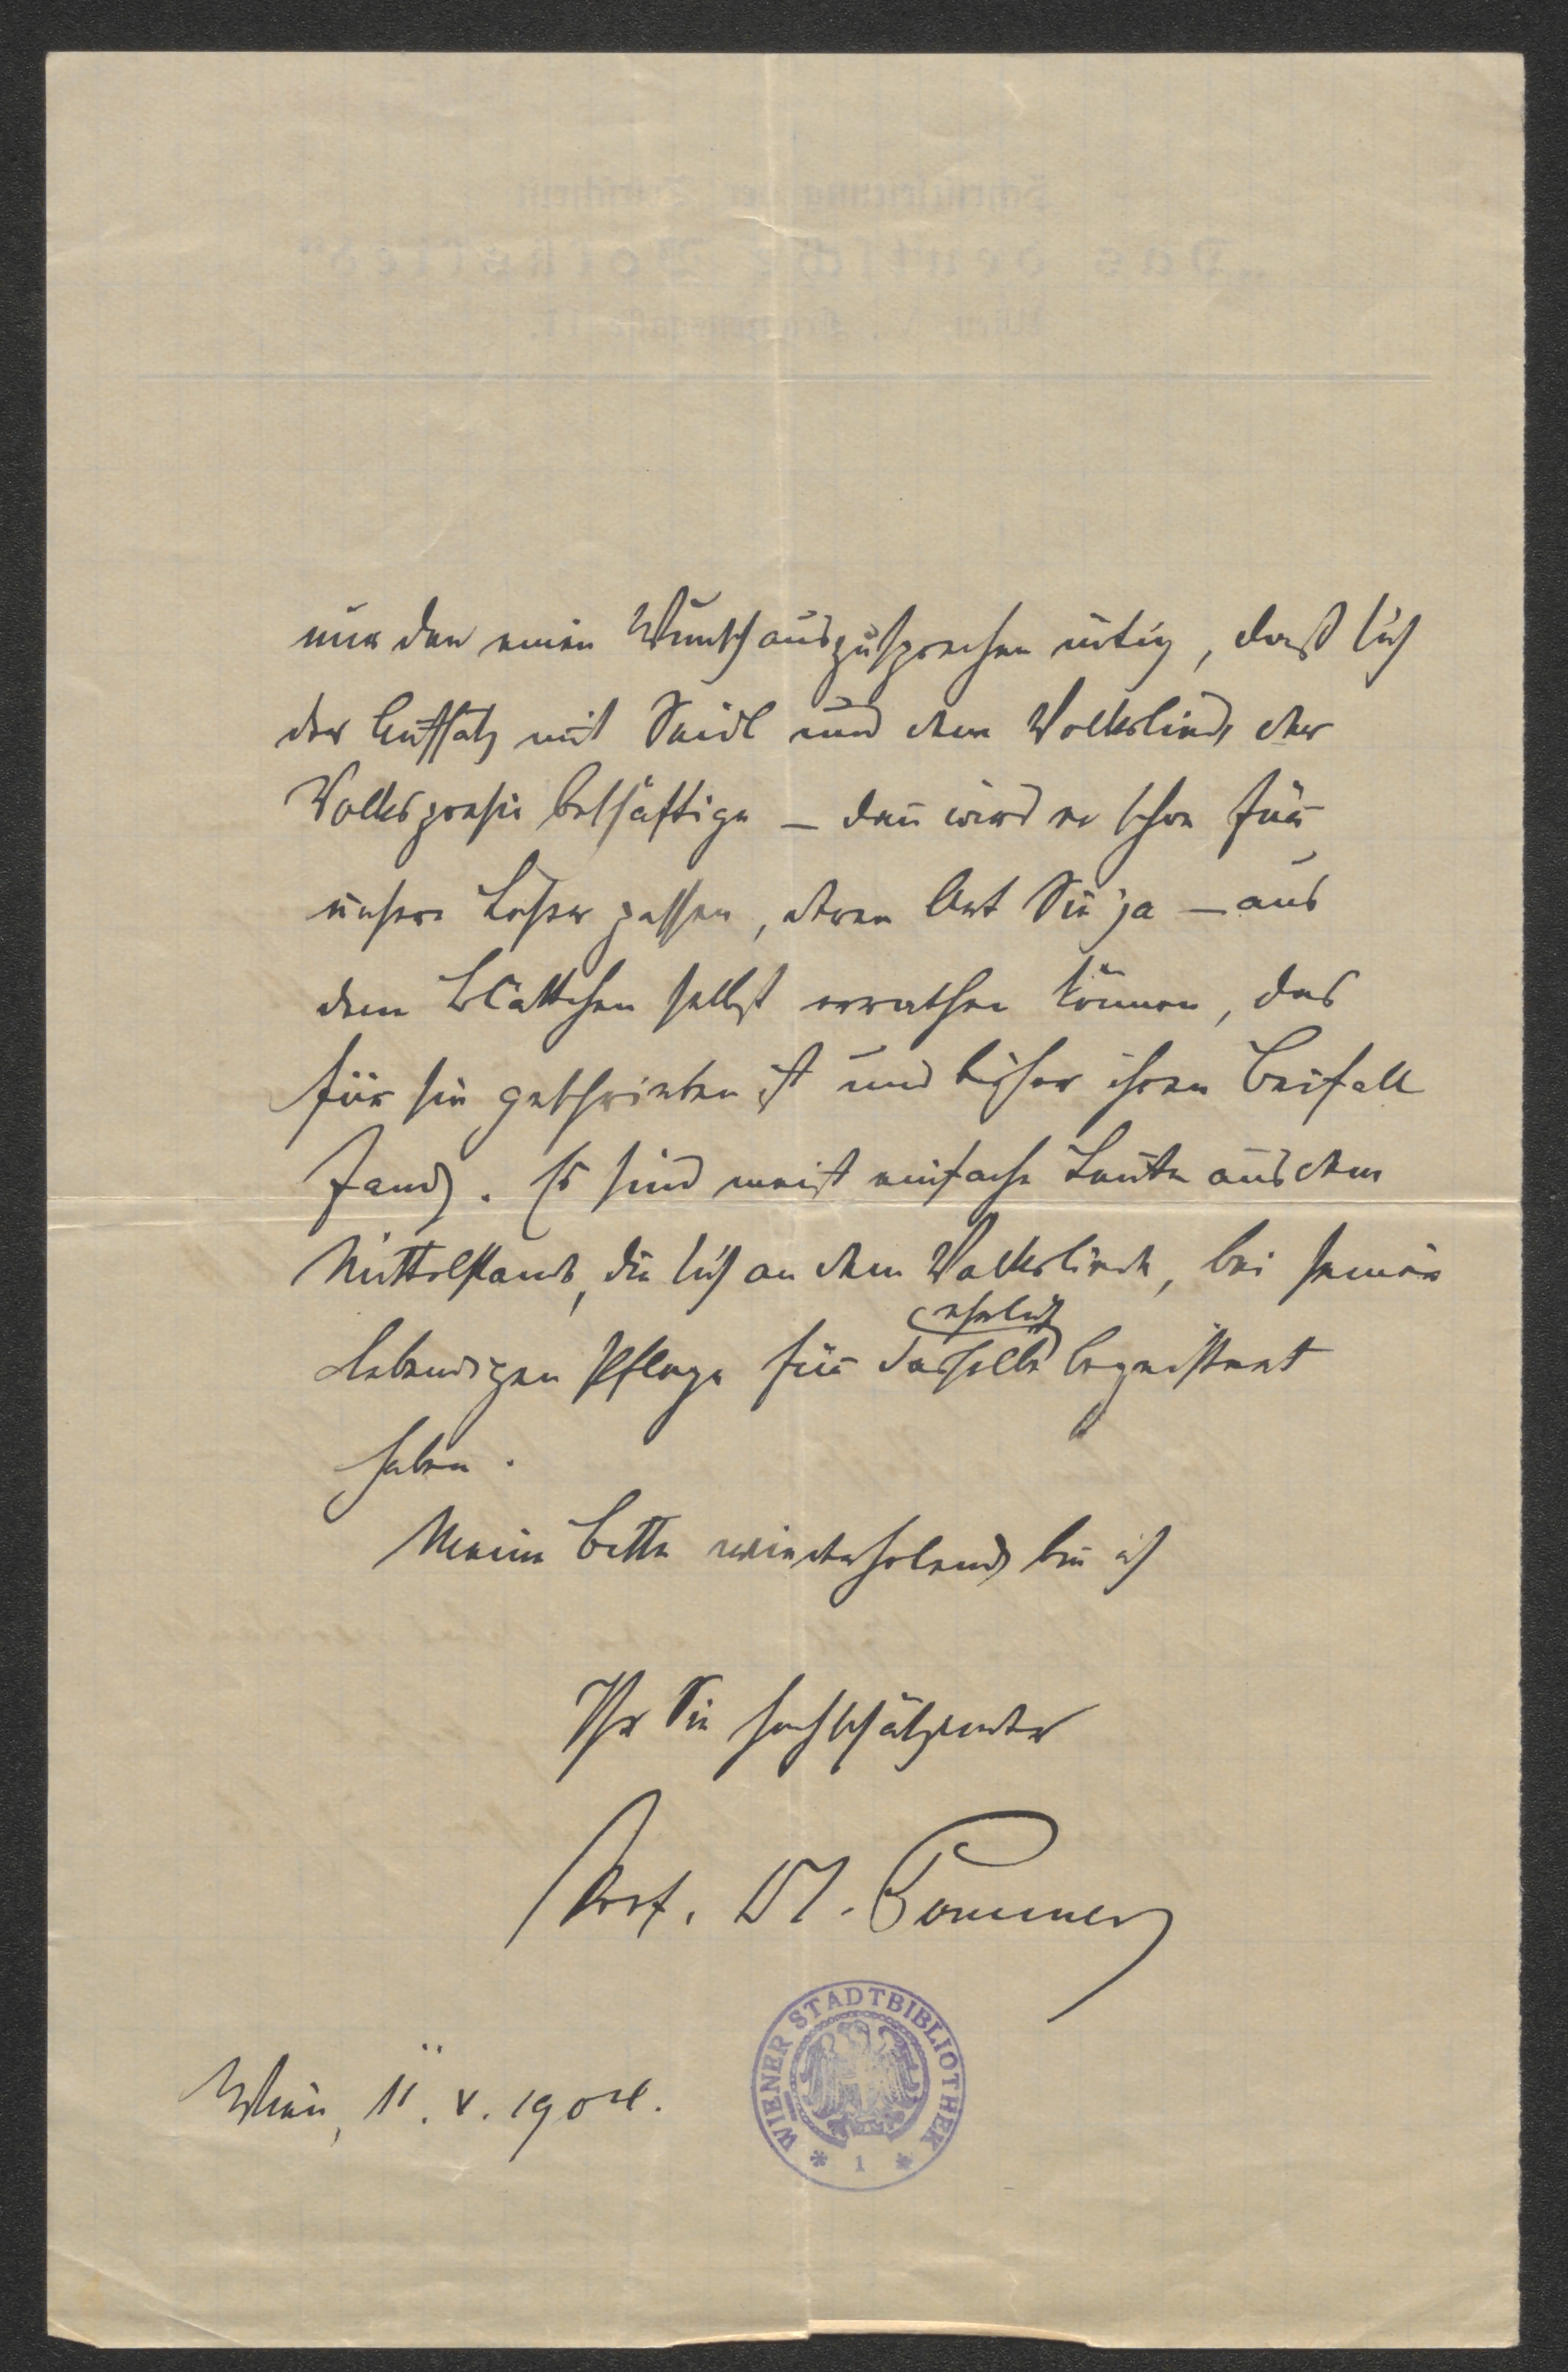 nur den einen Wunsch auszusprechen nötig, daß sich
der Aufsatz mit Seidl und dem Volkslied, der
Volkspoesie beschäftige – dann wird er schon für
unsere Leser passen, deren Art Sie ja – aus
dem Blättchen selbst errathen können, das
für sie geschrieben ist und bisher ihren Beifall
fand. Es sind meist einfache Leute aus dem
Mittelstand, die sich an dem Volksliede, bei seiner
lebendigen Pflege für dasselbe begeistert
haben.
Meine Bitte wiederholend bin ich
Ihr Sie hochschätzender
Prof. Dr. J. Pommer
Wien, 11. V. 1904.
WIENER STADTBIBLIOTHEK
* 1 *